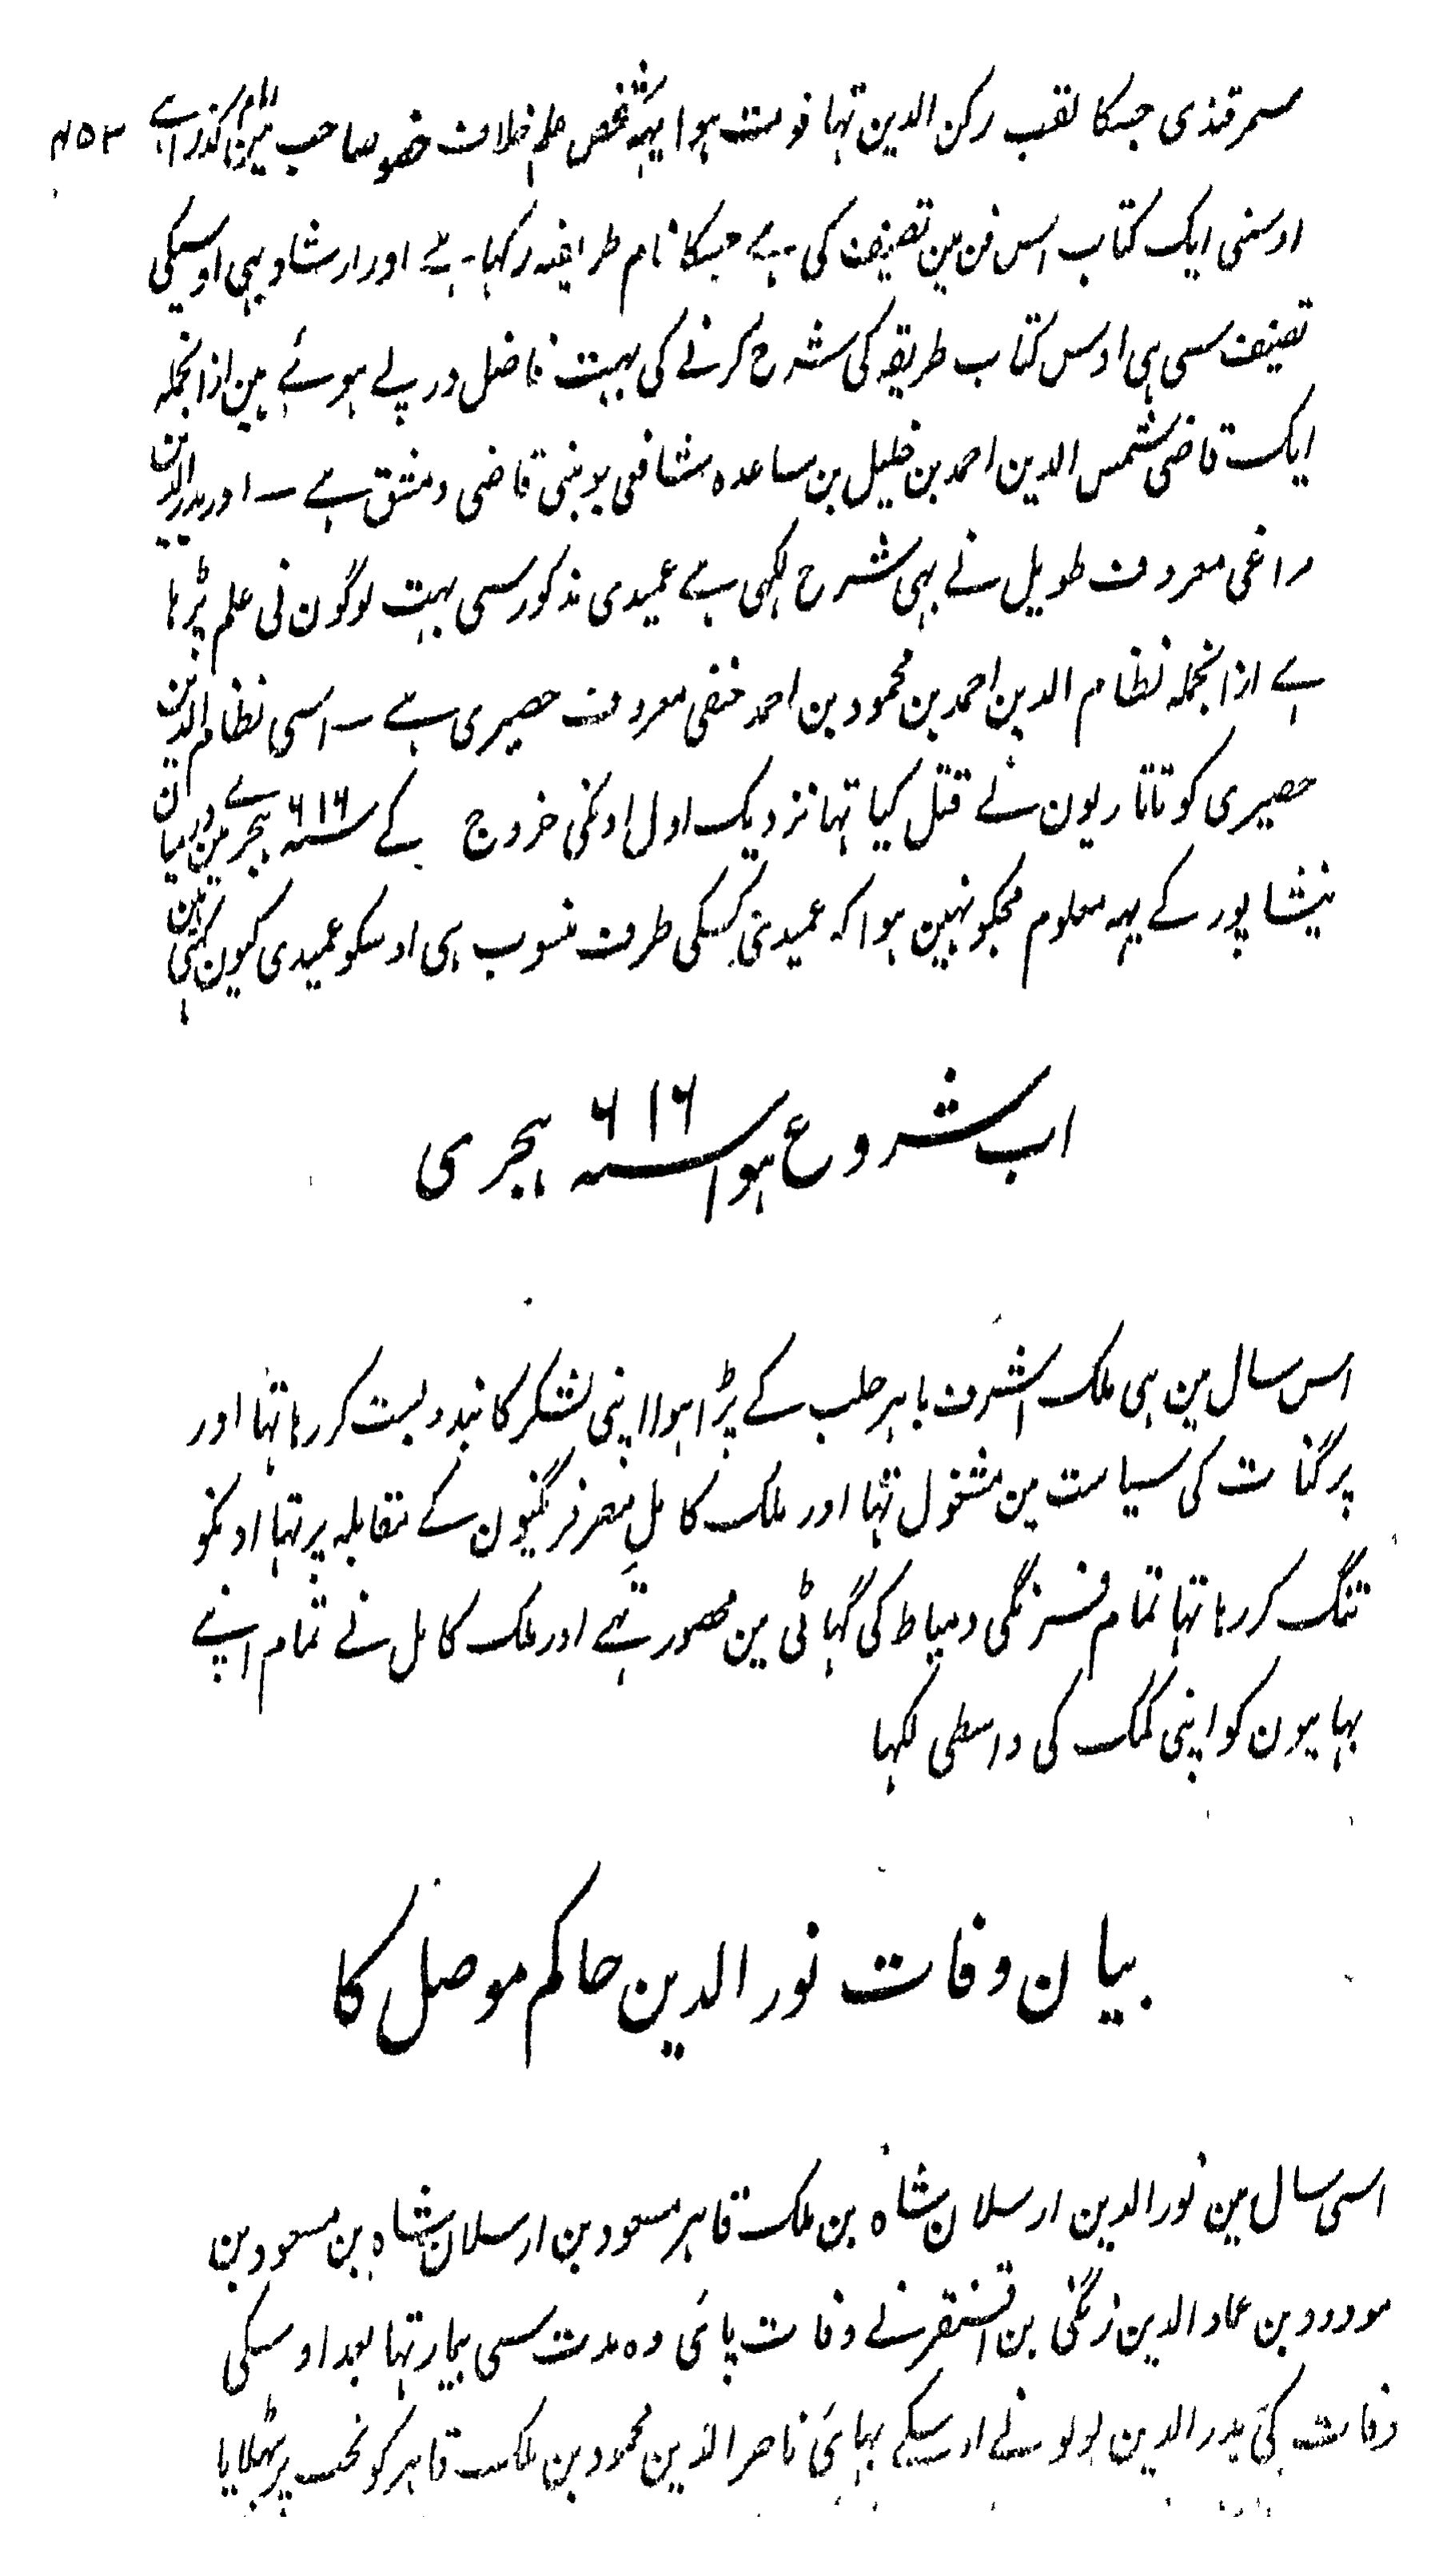 سمرقندی جسکا لقب رکن الدین تہا فوت ہوا یہہ شخص علم خلاف خصوصا حب مین امام گذرا ہے ۴۵۳
اوسنی ایک کتاب اس فن مین تصنیف کی ہے جسکا نام طریقہ رکہا ہے اور ارشاد بہی اوسیکی
تصنیف سی ہی اوس کتاب طریقہ کی شرح کرنے کی بہت فاضل درپے ہوئے ہین ازانجملہ
ایک قاضی شمس الدین احمد بن خلیل بن ساعدہ شافعی بوہنی قاضی دمشق ہے ۔ اور بدر الدین
مراغی معروف طویل نے بہی شرح لکہی ہے عمیدی مذکور سی بہت لوگون نی علم پڑہا
ہے ازانجملہ نظام الدین احمد بن محمود بن احمد حنفی معروف حصیری ہے ۔ اسی نظام الدین
حصیری کو تاتاریون نے قتل کیا تہا نزدیک اول اونکی خروج کے سنہ ۶۱۶ ہجری مین درمیان
نیشاپور کے یہہ معلوم مجکو نہین ہوا کہ عمیدی کسکی طرف منسوب ہی اوسکو عمیدی کیون کہتی ہین
اب شروع ہوا سنہ ۶۱۶ ہجری
اس سال مین ہی ملک اشرف باہر حلب کے پڑا ہوا اپنی لشکر کا بندوبست کر رہا تہا اور
پرگنات کی سیاست مین مشغول تہا اور ملک کامل مصر فرنگیون کے مقابلہ پر تہا اونکو
تنگ کر رہا تہا تمام فرنگی دمیاط کی گہاٹی مین محصور تہے اور ملک کامل نے تمام اپنے
بہائیون کو اپنی کمک کی واسطی لکہا
بیان وفات نور الدین حاکم موصل کا
اسی سال مین نور الدین ارسلان شاہ بن ملک قاہر مسعود بن ارسلان شاہ بن مسعود بن
مودود بن عماد الدین زنگی بن اقسنقر نے وفات پائی وہ مدت سی بیمار تہا بعد اوسکی
وفات کی بدر الدین لولو نے اوسیکے بہائی ناصر الدین محمود بن ملک قاہر کو تخت پر بٹہلایا